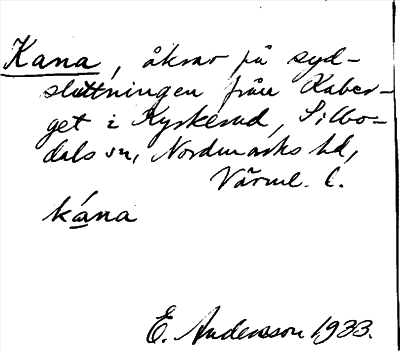 Kana, åkrar på syd-
sluttningen från Kaber-
get i Kyrkerud, Silbo-
dals sn, Nordmarks hd,
Värml. l.
kána
E. Andersson 1933.